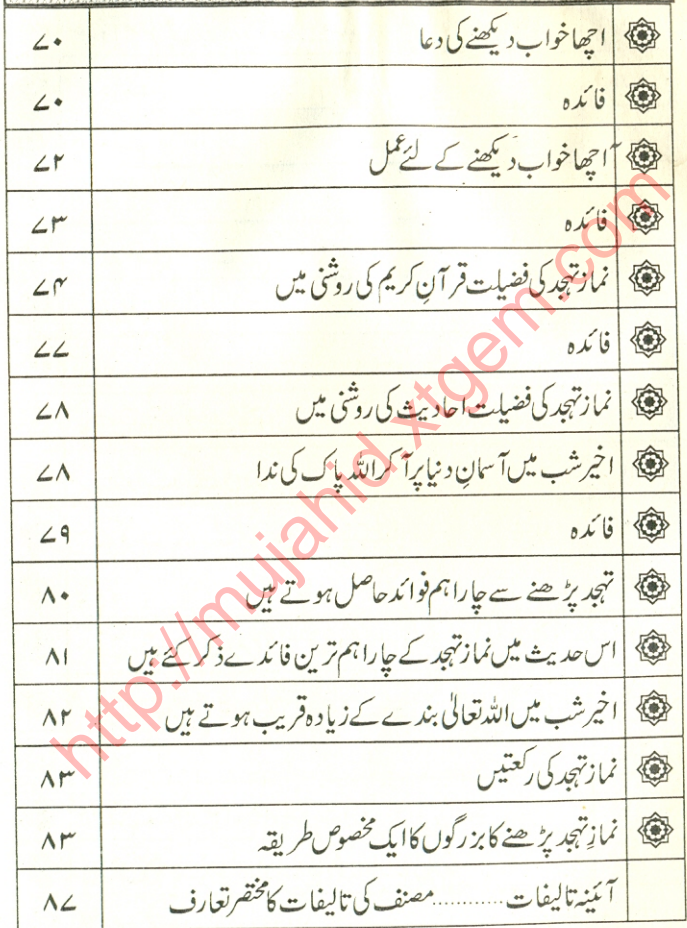 اچھا خواب دیکھنے کی دعا ۷۰
فائدہ ۷۰
اچھا خواب دیکھنے کے لئے عمل ۷۲
فائدہ ۷۳
نماز تہجد کی فضیلت قرآنِ کریم کی روشنی میں ۷۴
فائدہ ۷۷
نماز تہجد کی فضیلت احادیث کی روشنی میں ۷۸
اخیر شب میں آسمانِ دنیا پر آکر اللہ پاک کی ندا ۷۸
فائدہ ۷۹
تہجد پڑھنے سے چار اہم فوائد حاصل ہوتے ہیں ۸۰
اس حدیث میں نماز تہجد کے چار اہم ترین فائدے ذکر کئے ہیں ۸۱
اخیر شب میں اللہ تعالیٰ بندے کے زیادہ قریب ہوتے ہیں ۸۲
نماز تہجد کی رکعتیں ۸۳
نمازِ تہجد پڑھنے کا بزرگوں کا ایک مخصوص طریقہ ۸۳
آئینہ تالیفات ............ مصنف کی تالیفات کا مختصر تعارف ۸۷
http://mujahid.xtgem.com